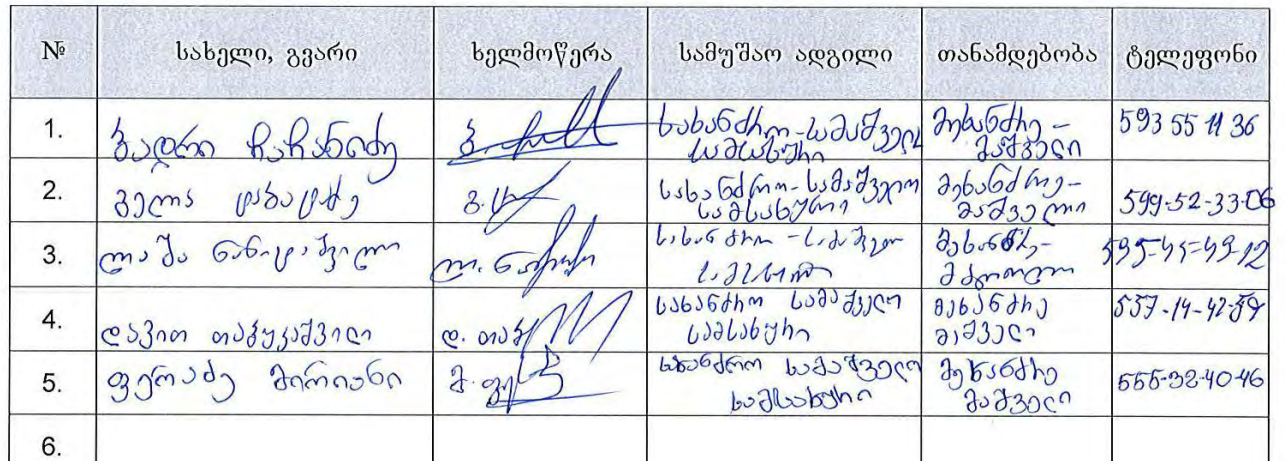 № სახელი, გვარი ხელმოწერა სამუშაო ადგილი თანამდებობა ტელეფონი
1. ბადრი ჩაჩანიძე ბ. სახანძრო-სამაშველო სამსახური მეხანძრე-მაშველი 593 55 11 36
2. გელა ტაბატაძე გ. სახანძრო-სამაშველო სამსახური მეხანძრე-მაშველი 599-52-33-06
3. ლაშა ლ. სახანძრო-სამაშველო სამსახური მეხანძრე-
4. დავით თაბუკაშვილი დ. თაბ სახანძრო სამაშველო სამსახური მეხანძრე მაშველი 557-14-42-59
5. ფერაძე მირიანი მ. ფე სახანძრო სამაშველო სამსახური მეხანძრე მაშველი 555-32-40-46
6.